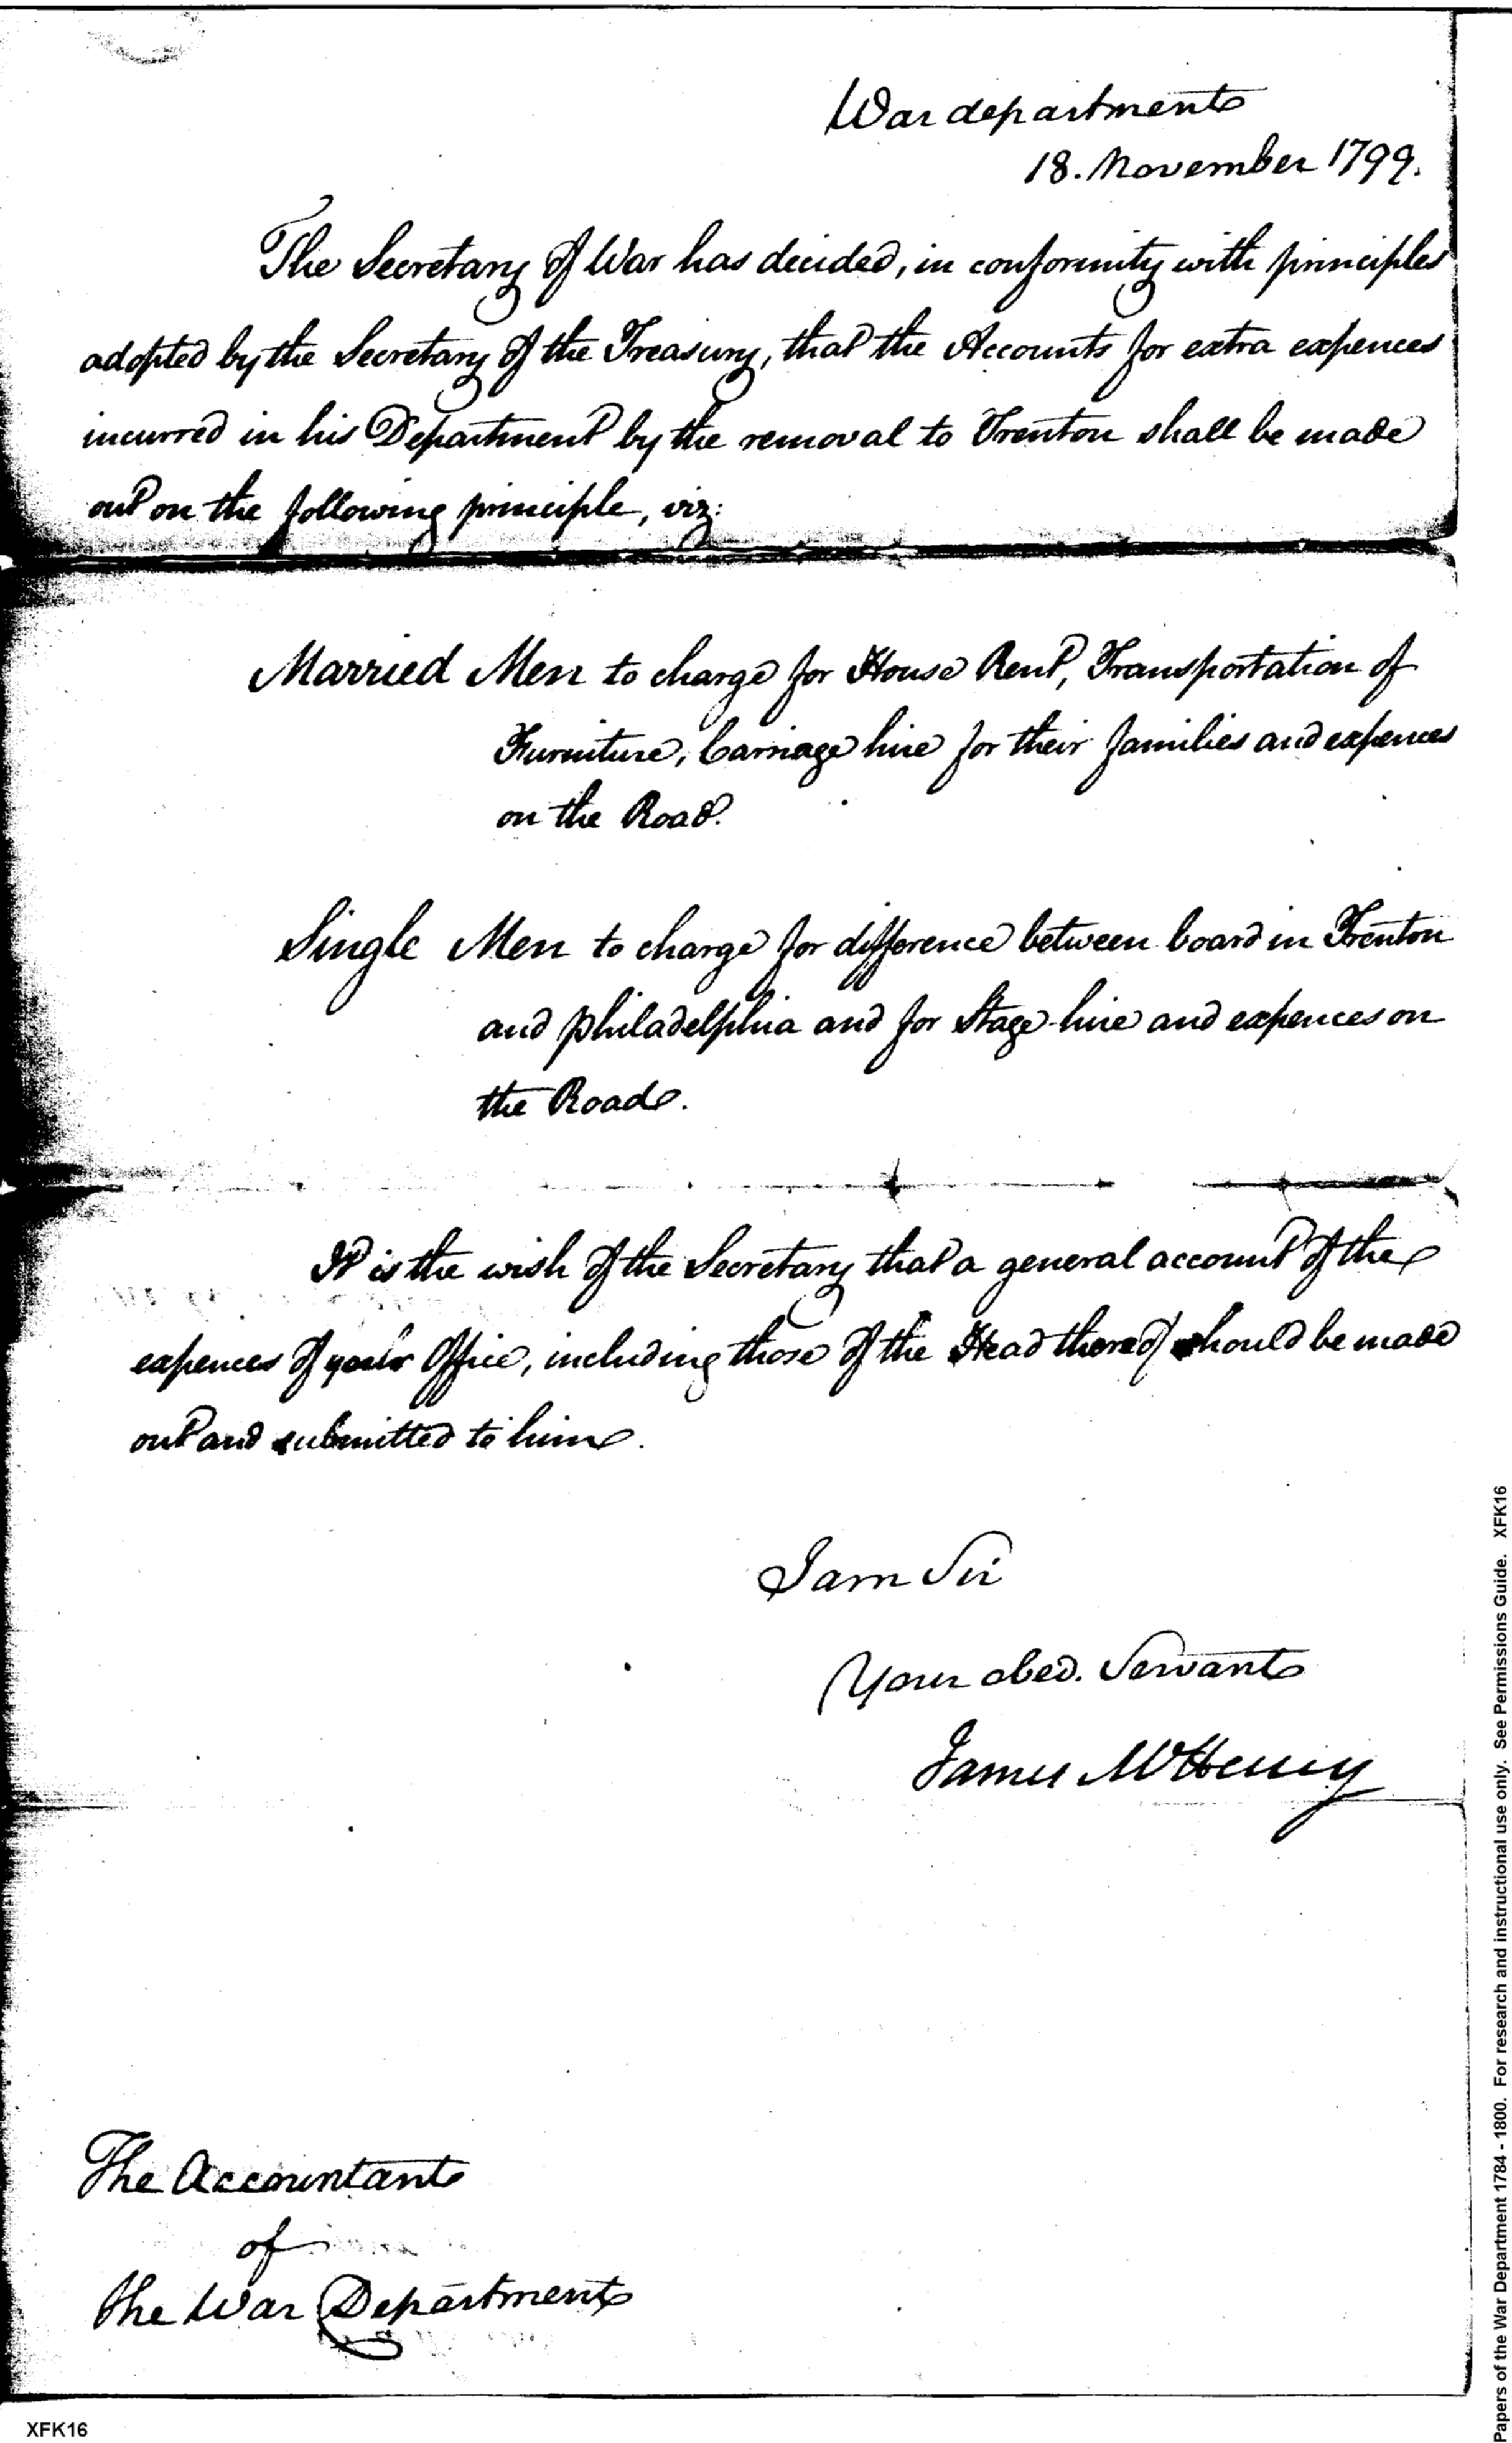 War department
18. November 1799.
The Secretary of War has decided, in conformity with principles
adopted by the Secretary of the Treasury, that the Accounts for extra expences
incurred in his Department by the removal to Trenton shall be made
out on the following principle, viz:
Married Men to charge for House Rent, Transportation of
Furniture, Carriage hire for their families and expences
on the Road.
Single Men to charge for difference between board in Trenton
and Philadelphia and for Stage-hire and expences on
the Road.
It is the wish of the Secretary that a general account of the
expences of your Office, including those of the Head thereof should be made
out and submitted to him.
I am Sir
Your obed. Servant
James McHenry
The Accountant
of
the War Department
XFK16
Papers of the War Department 1784 - 1800. For research and instructional use only. See Permissions Guide. XFK16